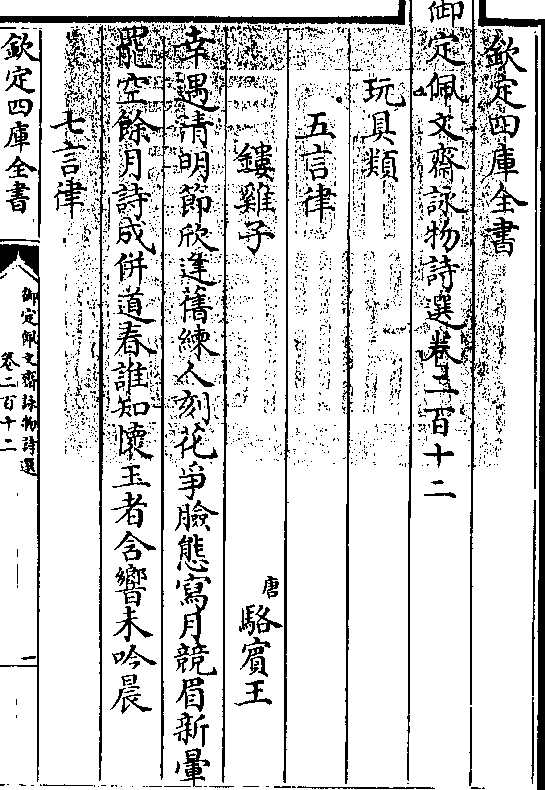 欽定四庫全書
御定佩文齋詠物詩選卷二百十二
玩具類
五言律
鏤雞子 唐 駱賓王
幸遇清明節欣逢舊練人刻花爭臉態寫月競眉新暈
罷空餘月詩成併道春誰知懷玉者含響未吟晨
七言律
欽定四庫全書 御定佩文齋詠物詩選 卷二百十二 一